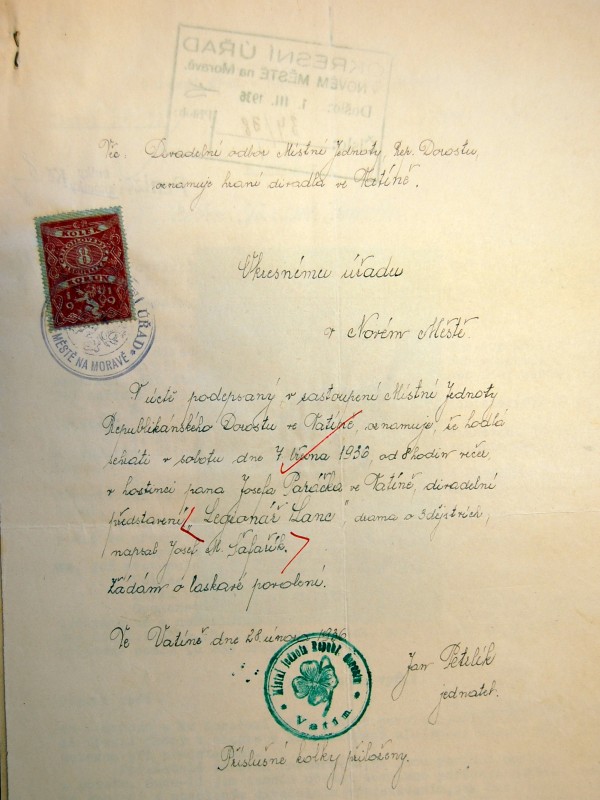 OKRESNÍ ÚŘAD
NOVÉM MĚSTĚ na Moravě.
Došlo: 1. III. 1936
Věc. Divadelní odbor Místní Jednoty, Rep. Dorostu,
oznamuje hraní divadla ve Vatíně.
KOLEK
8
KORUN
1919
MĚSTĚ NA MORAVĚ
ÚŘAD
Okresnímu úřadu
v Novém Městě
V úctě podepsaný v zastoupení Místní Jednoty
Republikánského Dorostu ve Vatíně, oznamuje, že hodlá
sehráti v sobotu dne 7. března 1936, od 8 hodin večer,
v hostinci pana Josefa Paráčka ve Vatíně, divadelní
představení „Legionář Lanc", drama o 3 dějstvích,
napsal Josef M. Šafařík.
Žádám o laskavé povolení.
Ve Vatíně dne 28. února 1936
Jan Petelík
jednatel.
Místní Jednota Republ. Dorostu
Vatín.
Příslušné kolky přiloženy.